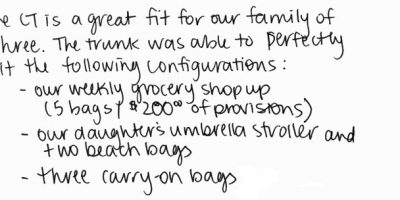 e CT is a great fit for our family of
hree. The trunk was able to perfectly
it the following configurations:
- our weekly grocery shop up
(5 bags / $200⁰⁰ of provisions)
- our daughter's umbrella stroller and
two beach bags
- three carry-on bags